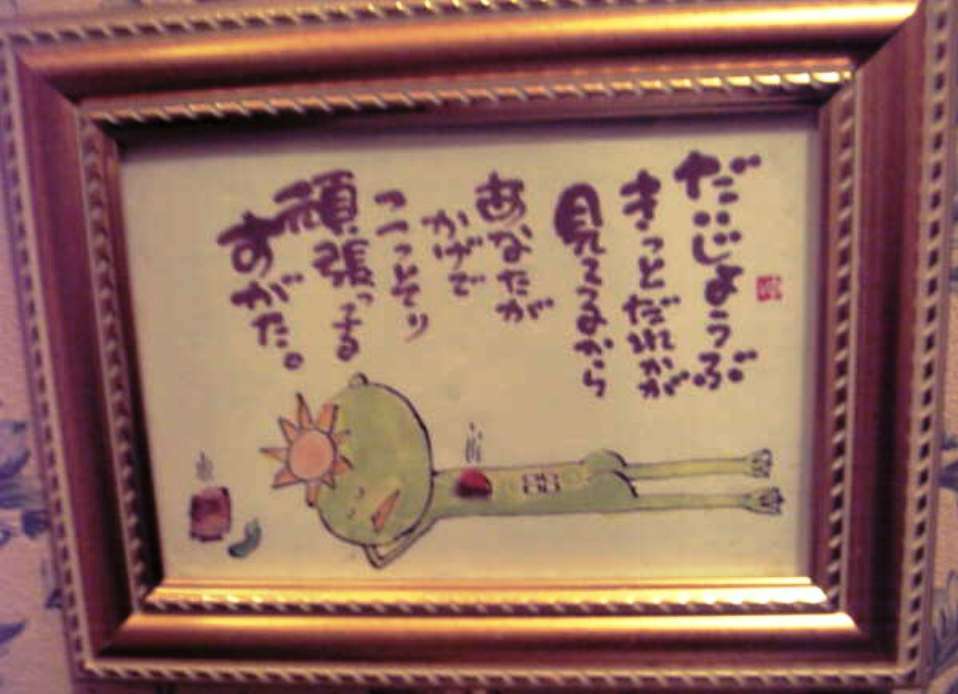 だいじょうぶ
きっとだれかが
見えてるから
あなたが
かげで
こっそり
頑張ってる
すがた。